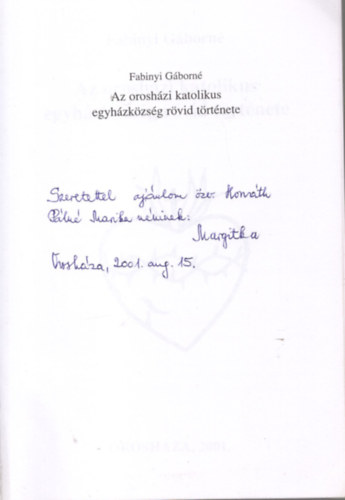 Fabinyi Gáborné
Az orosházi katolikus
egyházközség rövid története
Szeretettel ajánlom özv. Horváth
Pálné Marika néninek:
Margitka
Orosháza, 2001. aug. 15.